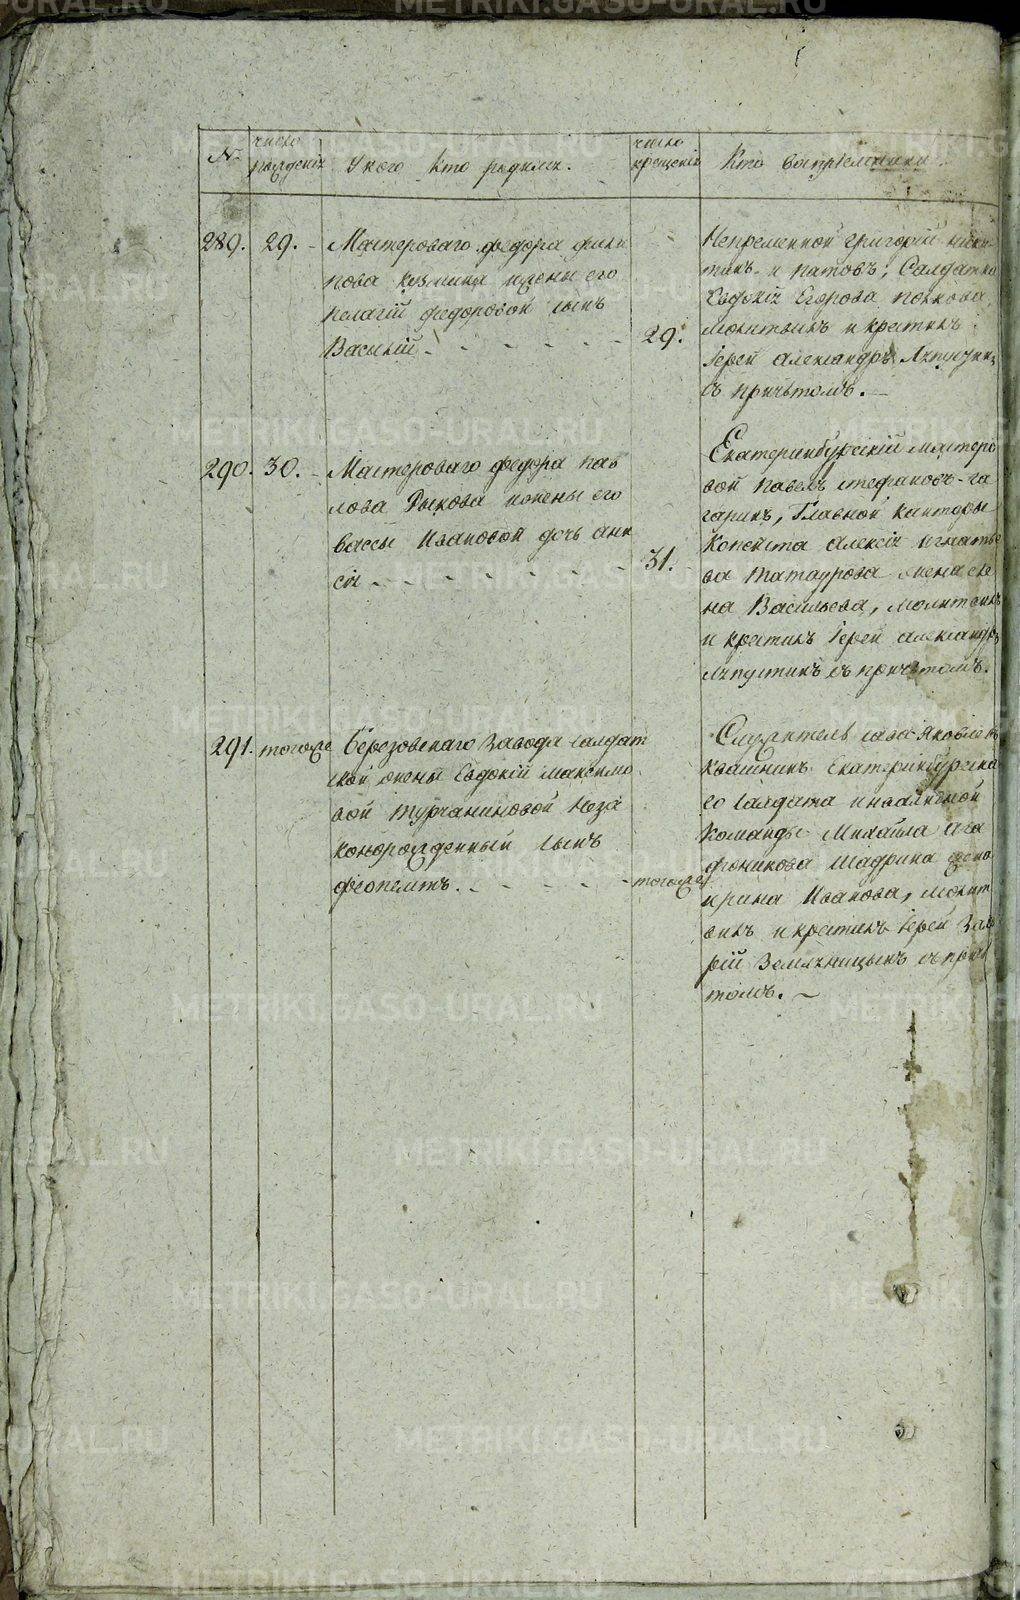 №
число рождения
у кого кто родился.
число крещения
Кто восприемники.
289.
29.
Мастероваго федора фили
пова кузмина и жены его
пелагіи федоровой сынъ
Василій.
29.
Непременной григорій ники-
тинъ и патовъ; Салдатка
Евдокія Егорова
молитвилъ и крестилъ
Іерей александръ
съ причьтомъ.
290.
30.
Мастероваго федора пав
лова Рыкова и жены его
вассы Ивановой дочь ани
сія
31.
Екатеринбургскій мастеро
вой павелъ стефановъ га
гаринъ, Главной канторы
копеиста алексія игнатье
ва татаурова жена еле
на Васильева, молитвилъ
и крестилъ Іерей александръ
Ляпустинъ съ причьтомъ.
291.
тогоже
Березовскаго завода салдат
ской жены Евдокіи максимо
вой турчаниновой неза
конорожденный сынъ
феопемптъ.
тогоже
Служитель сава Яковлевъ
квашнинъ Екатеринбурска
го салдата инвалидной
команды Михаила ага
фоникова Шадрина жена
ирина Иванова, молит
вилъ и крестилъ Іерей Вале
рій Земляницынъ съ прич
томъ.
METRIKI.GASO-URAL.RU